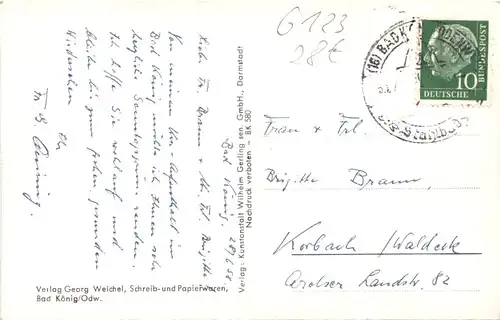 G 123
28€
Bad König, 28/6 58.
Liebe Fr. Braun & lb. Frl. Brigitte,
Von meinem Kur-Aufenthalt in
Bad König möchte ich Ihnen sehr
herzliche Sonntagsgrüsse senden.
Ich hoffe Sie wohlauf und
bleibe bis zum frohen, gesunden
Wiedersehen
Ihr
Verlag Georg Weichel, Schreib- und Papierwaren,
Bad König/Odw.
Verlag: Kunstanstalt Wilhelm Gerling sen. GmbH., Darmstadt
Nachdruck verboten – BK 580
(16) BAD KÖNIG
10
DEUTSCHE
BUNDESPOST
Frau & Frl.
Brigitte Braun
Korbach/Waldeck
Arolser Landstr. 82